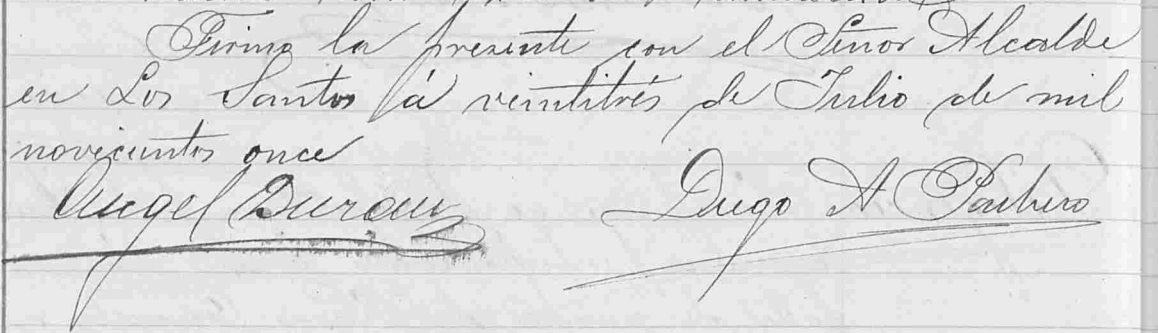 Firmo la presente con el Señor Alcalde
en Los Santos á veintitrés de Julio de mil
novecientos once
Angel Duran Diego A Pacheco